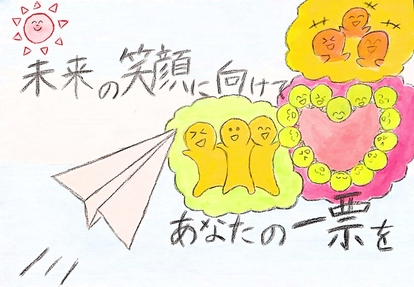 未来の笑顔に向けて
あなたの一票を